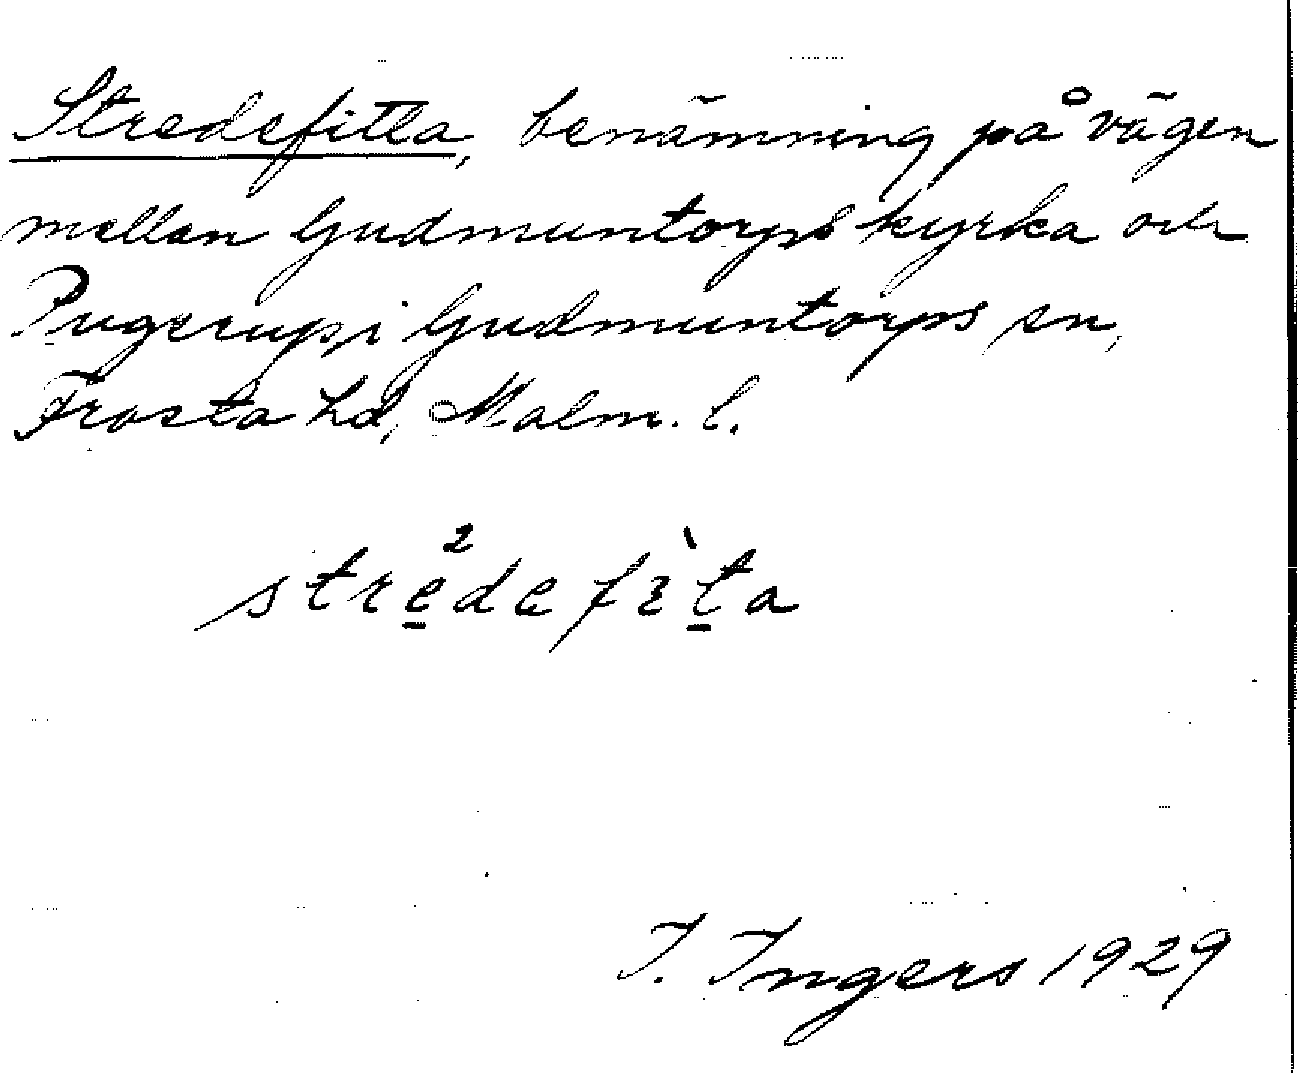 Stredefitta, benämning på vägen
mellan Gudmuntorps kyrka och
Pugerup, i Gudmuntorps sn,
Frosta hd, Malm. l.
stre̲²defìt̲a
I. Ingers 1929